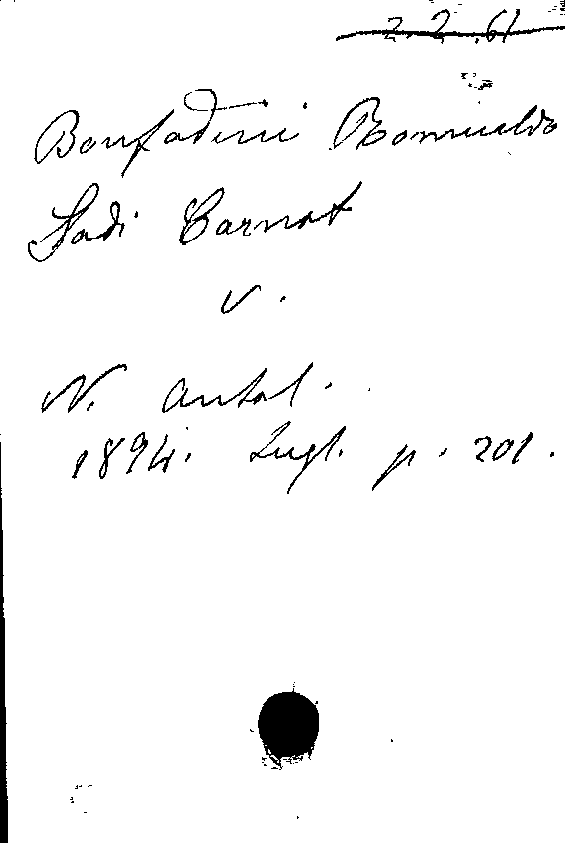 2.2.61
Bonfadini Romualdo
Sadi Carnot
v.
N. Antol.
1894. Lugl. p. 201.